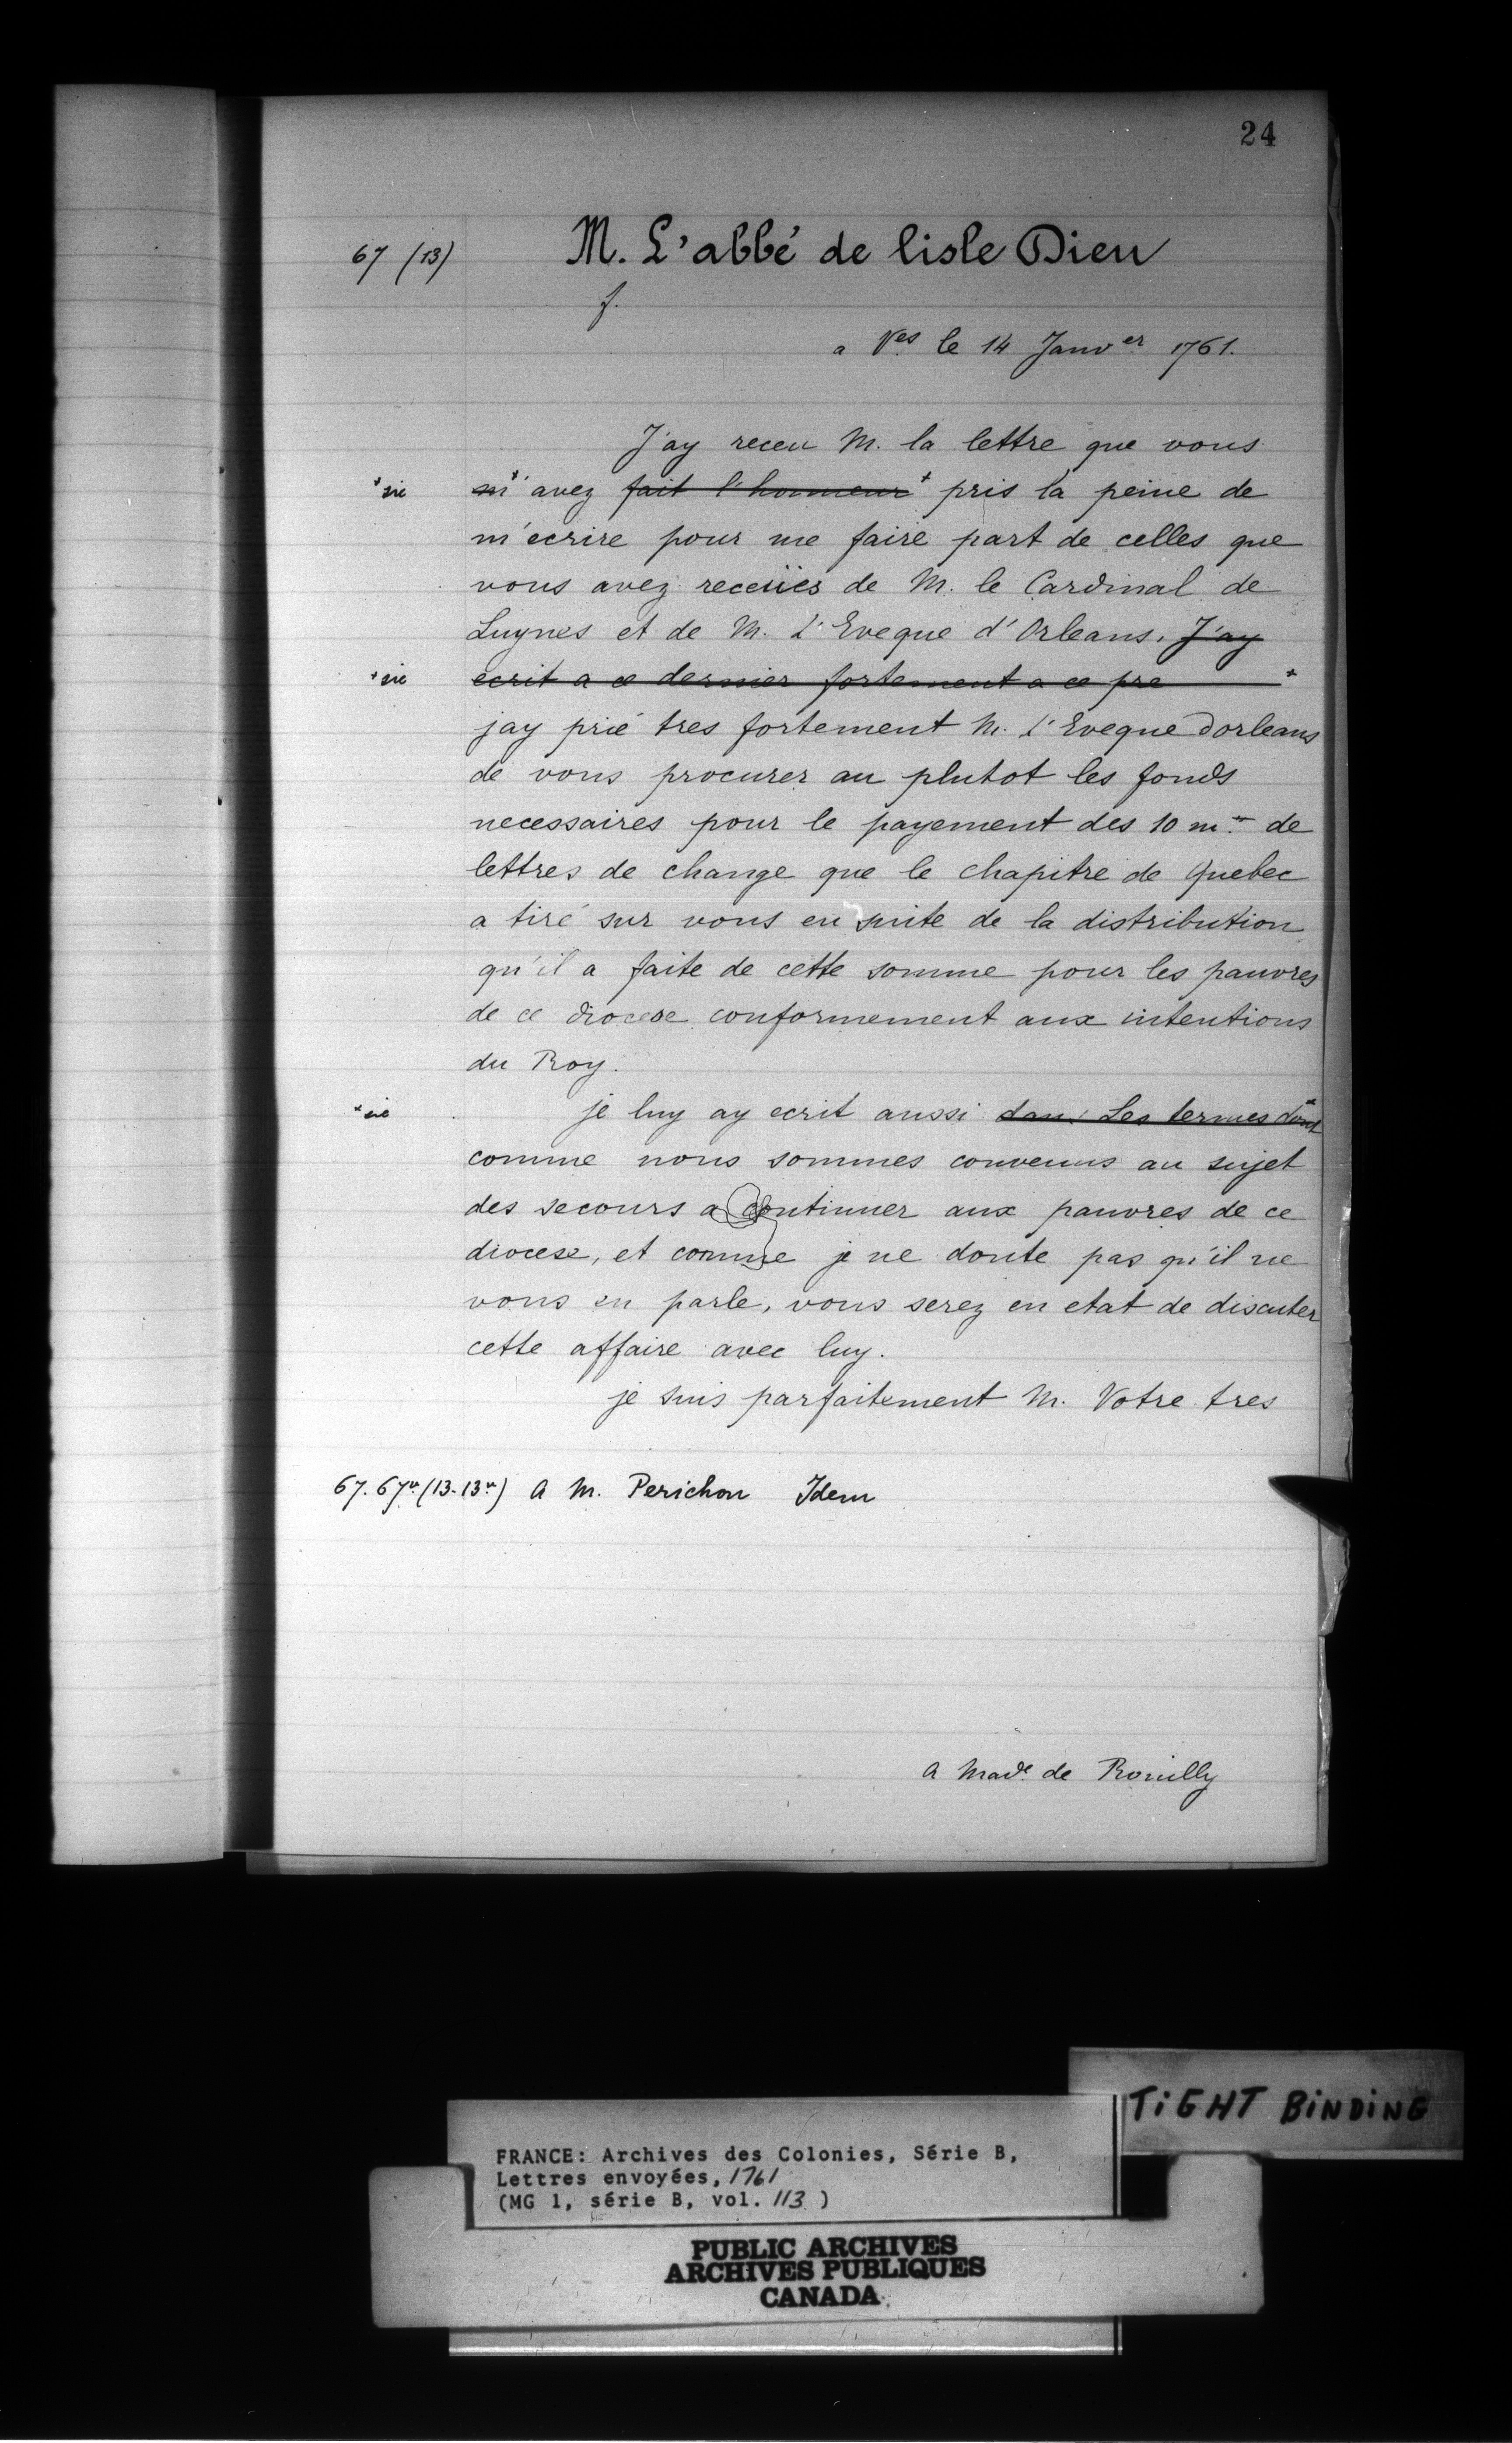 24
67 (13) M. L'abbé de lisle Dieu
f.
a V.es le 14 Janv.er 1761.
J'ay receu M. la lettre que vous
*sic m'* avez fait l'honneur * pris la peine de
m'ecrire pour me faire part de celles que
vous avez receües de M. le Cardinal de
Luynes et de M. L'Eveque d'Orleans. J'ay
*sic ecrit a ce dernier fortement a ce pre *
jay prié tres fortement M. l'Eveque dorleans
de vous procurer au plutot les fonds
necessaires pour le payement des 10 m.tt de
lettres de change que le chapitre de Quebec
a tiré sur vous en suite de la distribution
qu'il a faite de cette somme pour les pauvres
de ce diocese conformement aux intentions
du Roy.
*sic je luy ay ecrit aussi dans Les termes dont *
comme nous sommes convenus au sujet
des secours a continuer aux pauvres de ce
diocese, et comme je ne doute pas qu'il ne
vous en parle, vous serez en etat de discuter
cette affaire avec luy.
je suis parfaitement M. Votre tres
67.67v (13-13v) A M. Perichon Idem
A Made. de Rouilly
TIGHT BINDING
FRANCE: Archives des Colonies, Série B,
Lettres envoyées, 1761
(MG 1, série B, vol. 113 )
PUBLIC ARCHIVES
ARCHIVES PUBLIQUES
CANADA